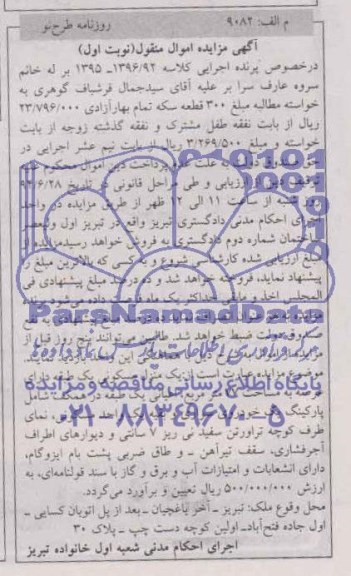 م الف: ۹۰۸۲ روزنامه طرح نو
آگهی مزایده اموال منقول(نوبت اول)
درخصوص پرونده اجرایی کلاسه ۱۳۹۶/۹۲ـ ۱۳۹۵ بر له خانم
سروه عارف سرا بر علیه آقای سیدجمال قرشباف گوهری به
خواسته مطالبه مبلغ ۳۰۰ قطعه سکه تمام بهارآزادی ۲۳/۷۹۶/۰۰۰
ریال از بابت نفقه طفل مشترک و نفقه گذشته زوجه از بابت
خواسته و مبلغ ۳/۲۶۹/۵۰۰ ریال از بابت نیم عشر اجرایی در
پرداخت دین اموال محکوم علیه
ارزیابی و طی مراحل قانونی در تاریخ
شنبه از ساعت ۱۱ الی ۱۲ ظهر از طریق مزایده در واحد
اجرای احکام مدنی دادگستری تبریز واقع در تبریز اول ولیعصر
ساختمان شماره دوم دادگستری به فروش خواهد رسید مزایده از
مبلغ ارزیابی شده کارشناسی شروع و به کسی که بالاترین مبلغ را
پیشنهاد نماید، فروخته خواهد شد و ده درصد مبلغ پیشنهادی فی
المجلس اخذ و مابقی حداکثر یک ماه فرصت داده می‌شود
ضبط خواهد شد. طالبین می‌توانند پنج روز قبل از
ParsNamadData
مرکز فرآوری اطلاعات پارس نماد داده ها
موضوع مزایده عبارت است از یک منزل مسکونی یک طبقه دارای
پایگاه اطلاع رسانی مناقصه و مزایده
عرصه به مساحت متر مربع طبقه در همکف شامل
پارکینگ یک واحد نمای
۰۲۱-۸۸۳۴۹۶۷۰-۵
طرف کوچه تراورتن سفید نی ریز ۷ سانتی و دیوارهای اطراف
آجرفشاری، سقف تیرآهن ـ و طاق ضربی پشت بام ایزوگام،
دارای انشعابات و امتیازات آب و برق و گاز با سند قولنامه‌ای، به
ارزش ۵۰۰/۰۰۰/۰۰۰ ریال تعیین و برآورد می‌گردد.
محل وقوع ملک: تبریز ـ آخر باغچیان ـ بعد از پل اتوبان کسایی ـ
اول جاده فتح‌آباد ـ اولین کوچه دست چپ ـ پلاک ۳۰
اجرای احکام مدنی شعبه اول خانواده تبریز